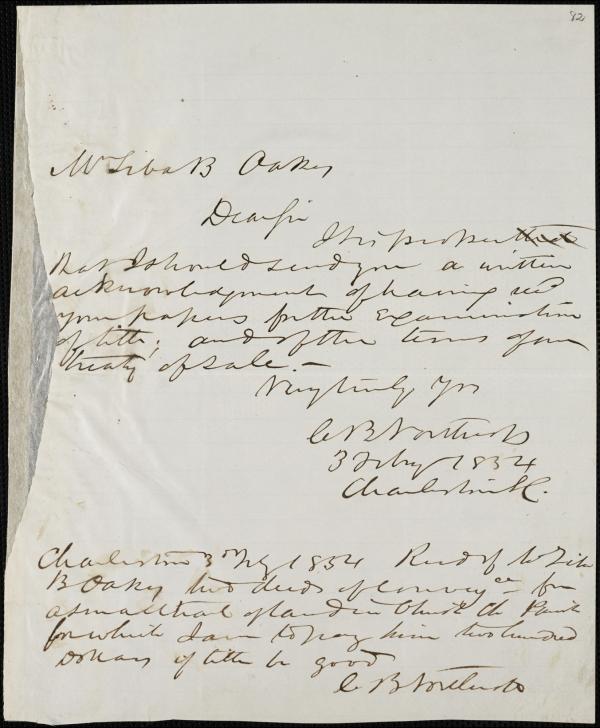 82
Mr Ziba B Oakes
Dear Sir
It is proper that
that I should send you a written
acknowledgment of having recd
your papers for the examination
of title; and of the terms of our
treaty of sale.—
Very truly Yrs
C B Northrop
3 Feby 1854
Charleston S C.
Charleston 3rd Feby 1854 Recd of Mr Ziba
B Oakes two deeds of conveyce for
a small tract of land in Christ Ch Parish
for which I am to pay him two hundred
Dollars if title be good
C B Northrop